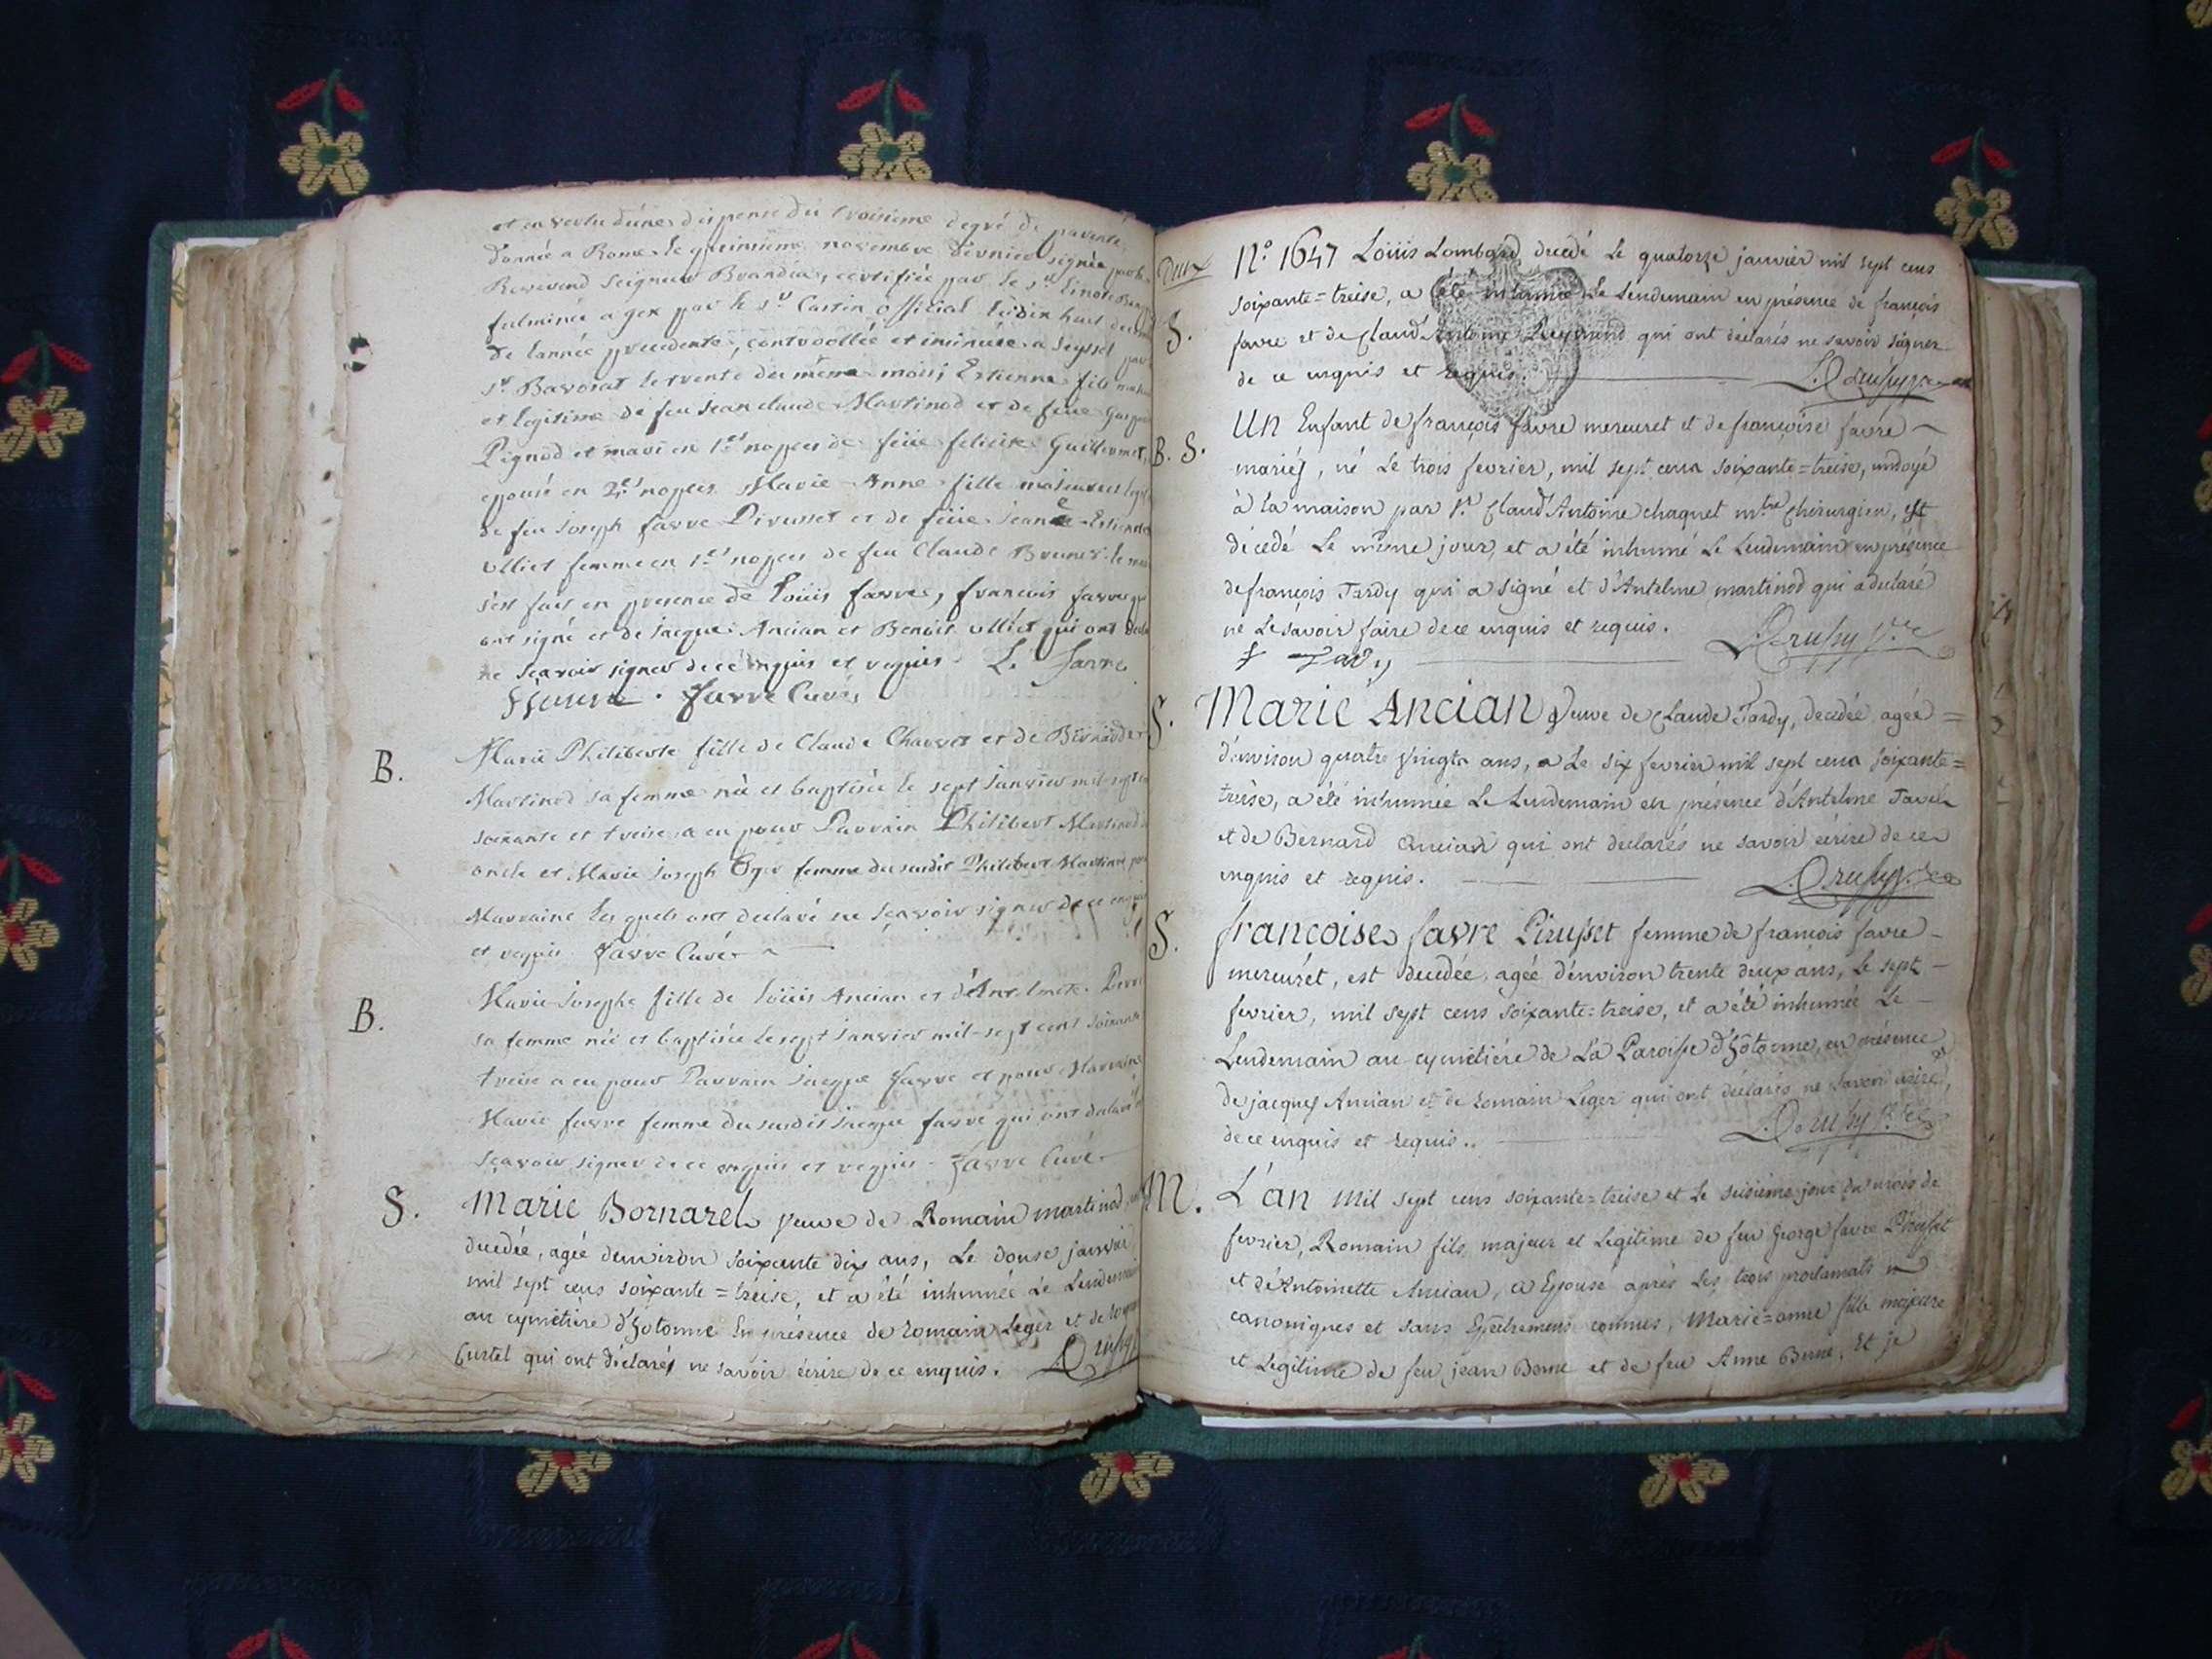 et en vertu d'une dispense du troisieme degré de parenté
donnée a Rome le quinsieme novembre dernier signée par le
Reverend Seigneur Brandin, certifiée par le sr
fulminée a gex par le sr Castin official le dix huit
de l'année precedente, controollée et insinuée a Seyssel par
sr Bavosat le trente du même mois; Estienne fils
et legitime de feu Jean claude Martinod et de feüe
Pignod et mari en 1res nopces de feüe felicite Guillermet,
epouse en 2es nopces Marie Anne fille majeure
de feu Joseph favre Pirusset et de feüe Jeanne
Olliet femme en 1res nopces de feu Claude Brunet le
s'est fait en presence de Loüis favre, francois favre qui
ont signé et de Jacque Ancian et Benoit olliet qui ont
ne scavoir signer de ce enquis et requis. L. favre
favre Curé
B. Marie Philiberte fille de Claude Charvet et de Bernarde
Martinod sa femme née et baptisée le sept Janvier mil sept
soixante et treise a eu pour Parrain Philibert Martinod
oncle et Marie Joseph Oger femme du susdit Philibert Martinod
Marraine les quels ont declaré ne scavoir signer de ce
et requis favre Curé
B. Marie Josephe fille de Loüis Ancian et d'Antelmete
sa femme née et baptisée le sept Janvier mil sept cens soixante
treise a eu pour Parrain Jacque favre et pour Marraine
Marie favre femme du susdit Jacque favre qui ont declaré
scavoir signer de ce enquis et requis favre Curé
S. Marie Bornarel veuve de Romain martinod,
decedée, agée d'environ soixante dix ans, Le douse janvier
mil sept cens soixante=treise, et a été inhumée Le Lendemain
au cymetiere d'hotonne En présence de romain Leger et de
Curtel qui ont déclarés ne savoir écrire de ce enquis.
deux N.° 1647 Loüis Lombard decedé Le quatorze janvier mil sept cens
soixante=treise, a été inhumé Le Lendemain en présence de françois
S. favre et de Claud'Antoine Reymond qui ont declarés ne savoir signer
de ce enquis et requis.
B. S. Un Enfant de françois favre mercuret et de françoise favre
mariés, né Le trois fevrier, mil sept cens soixante=treise, ondoyé
à la maison par Sr Claud'Antoine chaquet mtre Chirurgien, est
décedé Le même jour, et a été inhumé Le Lendemain en présence
de françois Tardy qui a signé et d'Antelme martinod qui a declaré
ne Le savoir faire de ce enquis et requis.
f Tardy
S. Marie Ancian Veuve de Claude Tardy, decedée agée
d'environ quatre vingts ans, Le six fevrier mil sept cens soixante=
treise, a été inhumée Le Lendemain en présence d'Antelme
et de Bernard Ancian qui ont declarés ne savoir écrire de ce
enquis et requis.
S. francoise favre Pirusset femme de françois favre
mercuret, est decedée, agée d'environ trente deux ans, Le sept
fevrier, mil sept cens soixante=treise, et a été inhumée Le
Lendemain au cymetiére de La Paroisse d'hotonne, en présence
de jacques Ancian et de romain Leger qui ont déclarés ne savoir écrire,
de ce enquis et requis.
M. L'an mil sept cens soixante=treise et Le seisieme jour du mois de
fevrier, Romain fils majeur et Legitime de feu George favre Pirusset
et d'Antoinette Ancian, a Epousé après Les trois proclamats
canoniques et sans Epêchemens connus, Marie=anne fille majeure
et Legitime de feu jean Berne et de feu Anne Berne. Et je